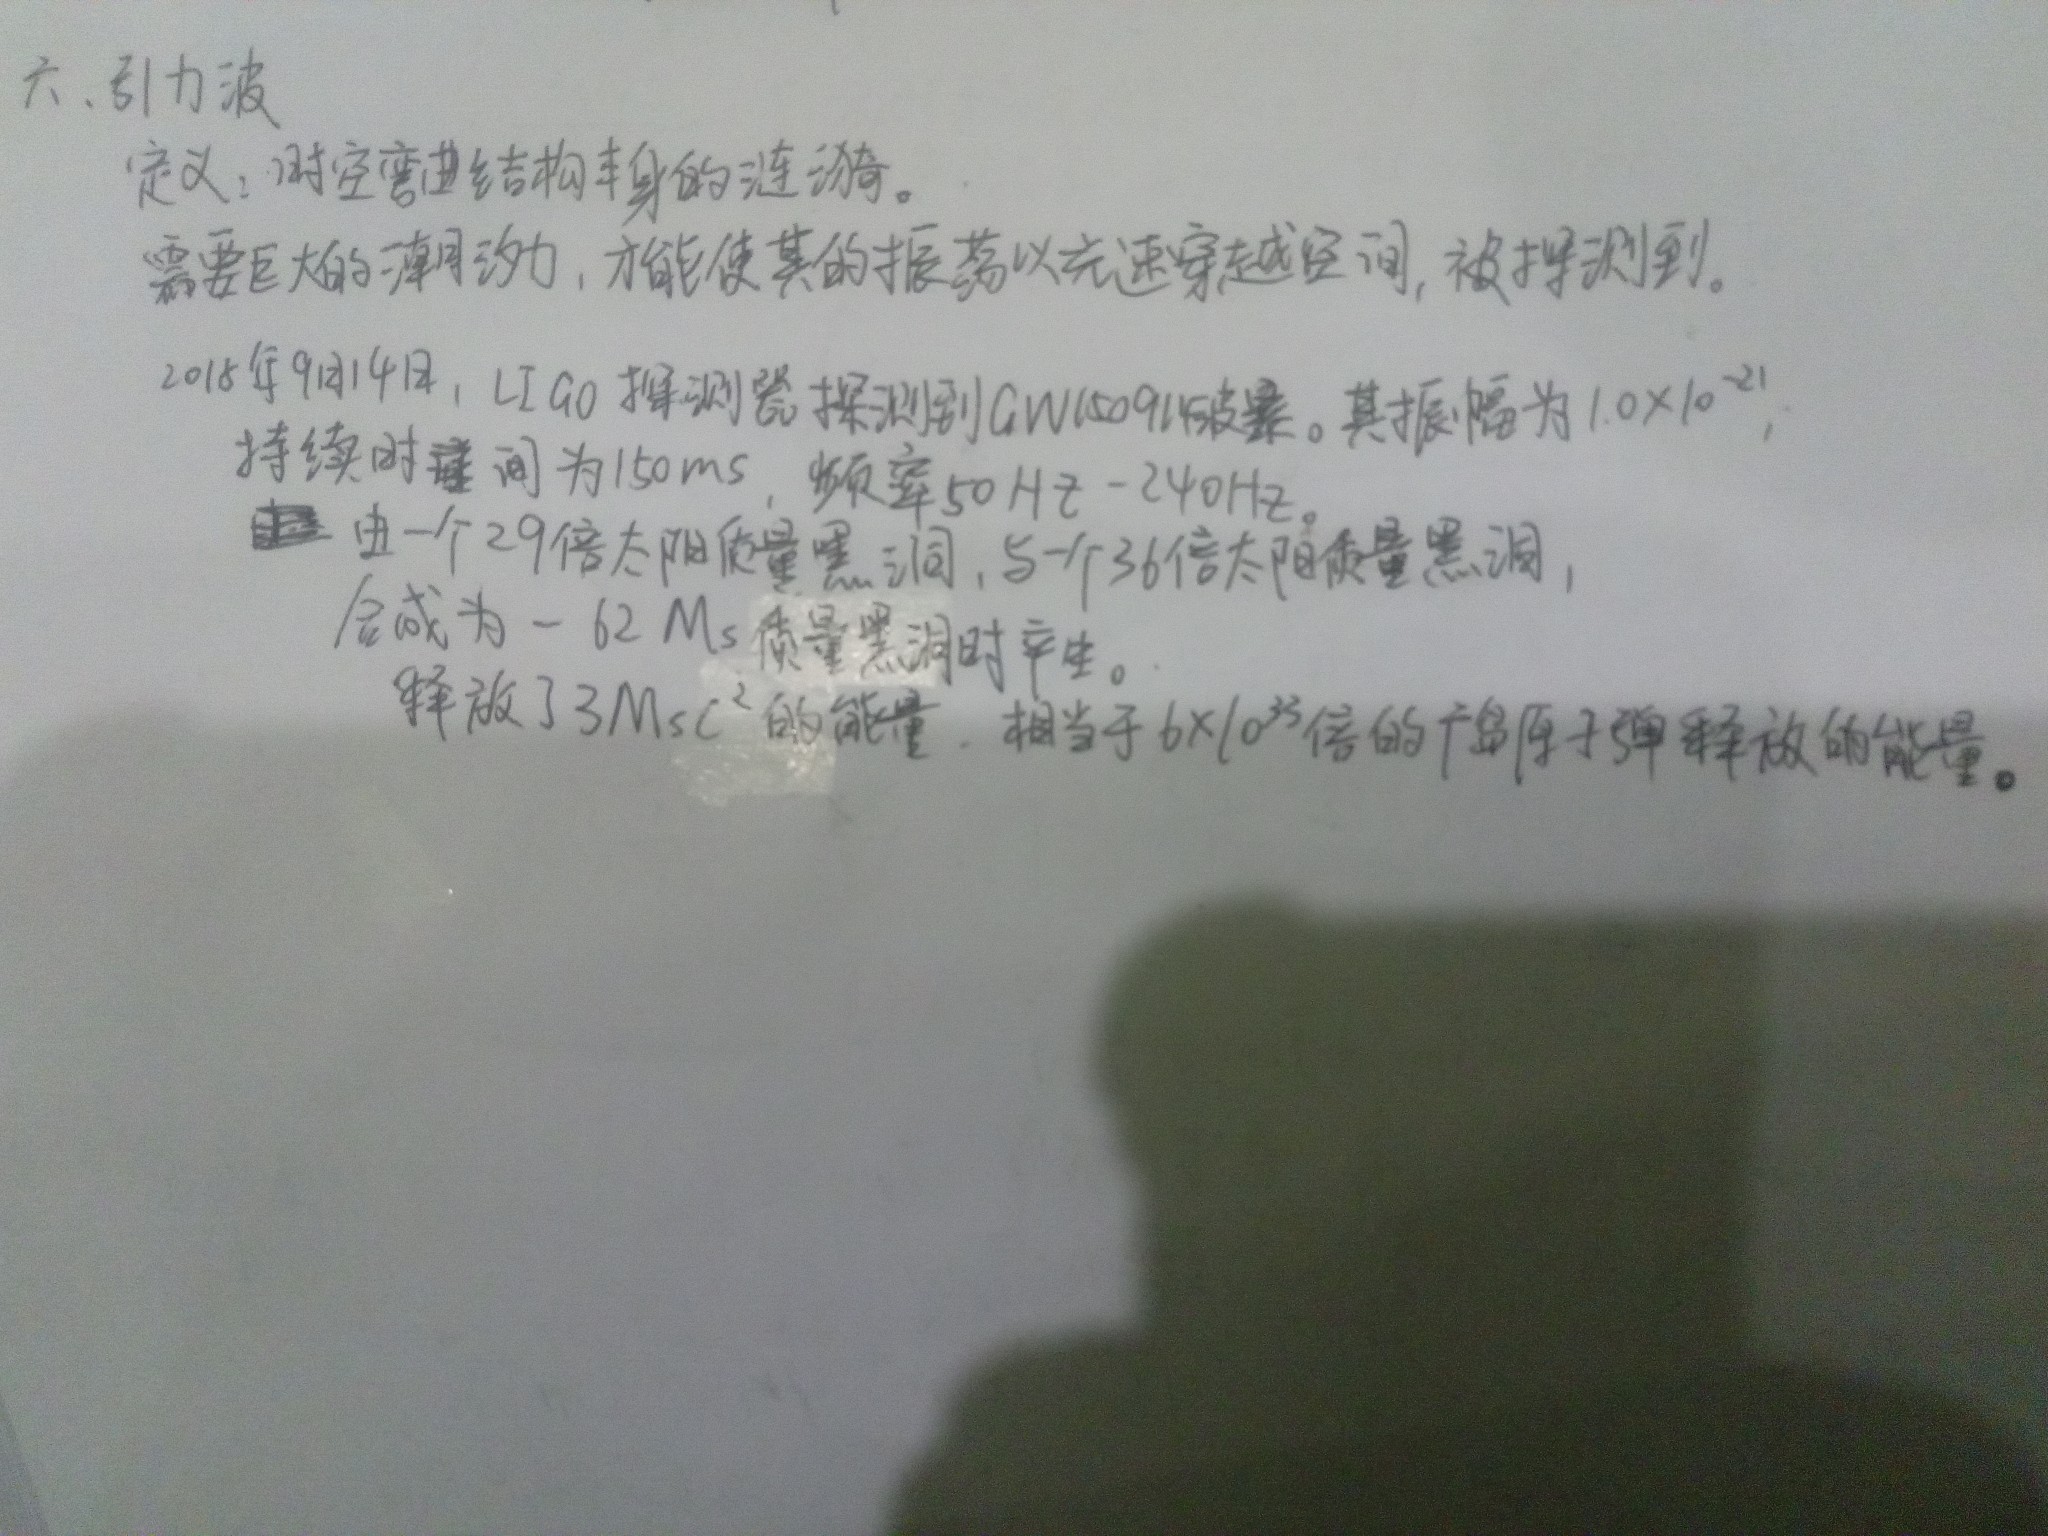 六、引力波
定义：时空弯曲结构本身的涟漪。
需要巨大的潮汐力，才能使其的振荡以光速穿越空间，被探测到。
2015年9月14日，LIGO探测器探测到GW150914波暴。其振幅为1.0×10⁻²¹，
持续时间为150ms，频率50Hz-240Hz。
由一个29倍太阳质量黑洞，与一个36倍太阳质量黑洞，
合成为一62Ms质量黑洞时产生。
释放了3Msc²的能量．相当于6×10³³倍的广岛原子弹释放的能量。